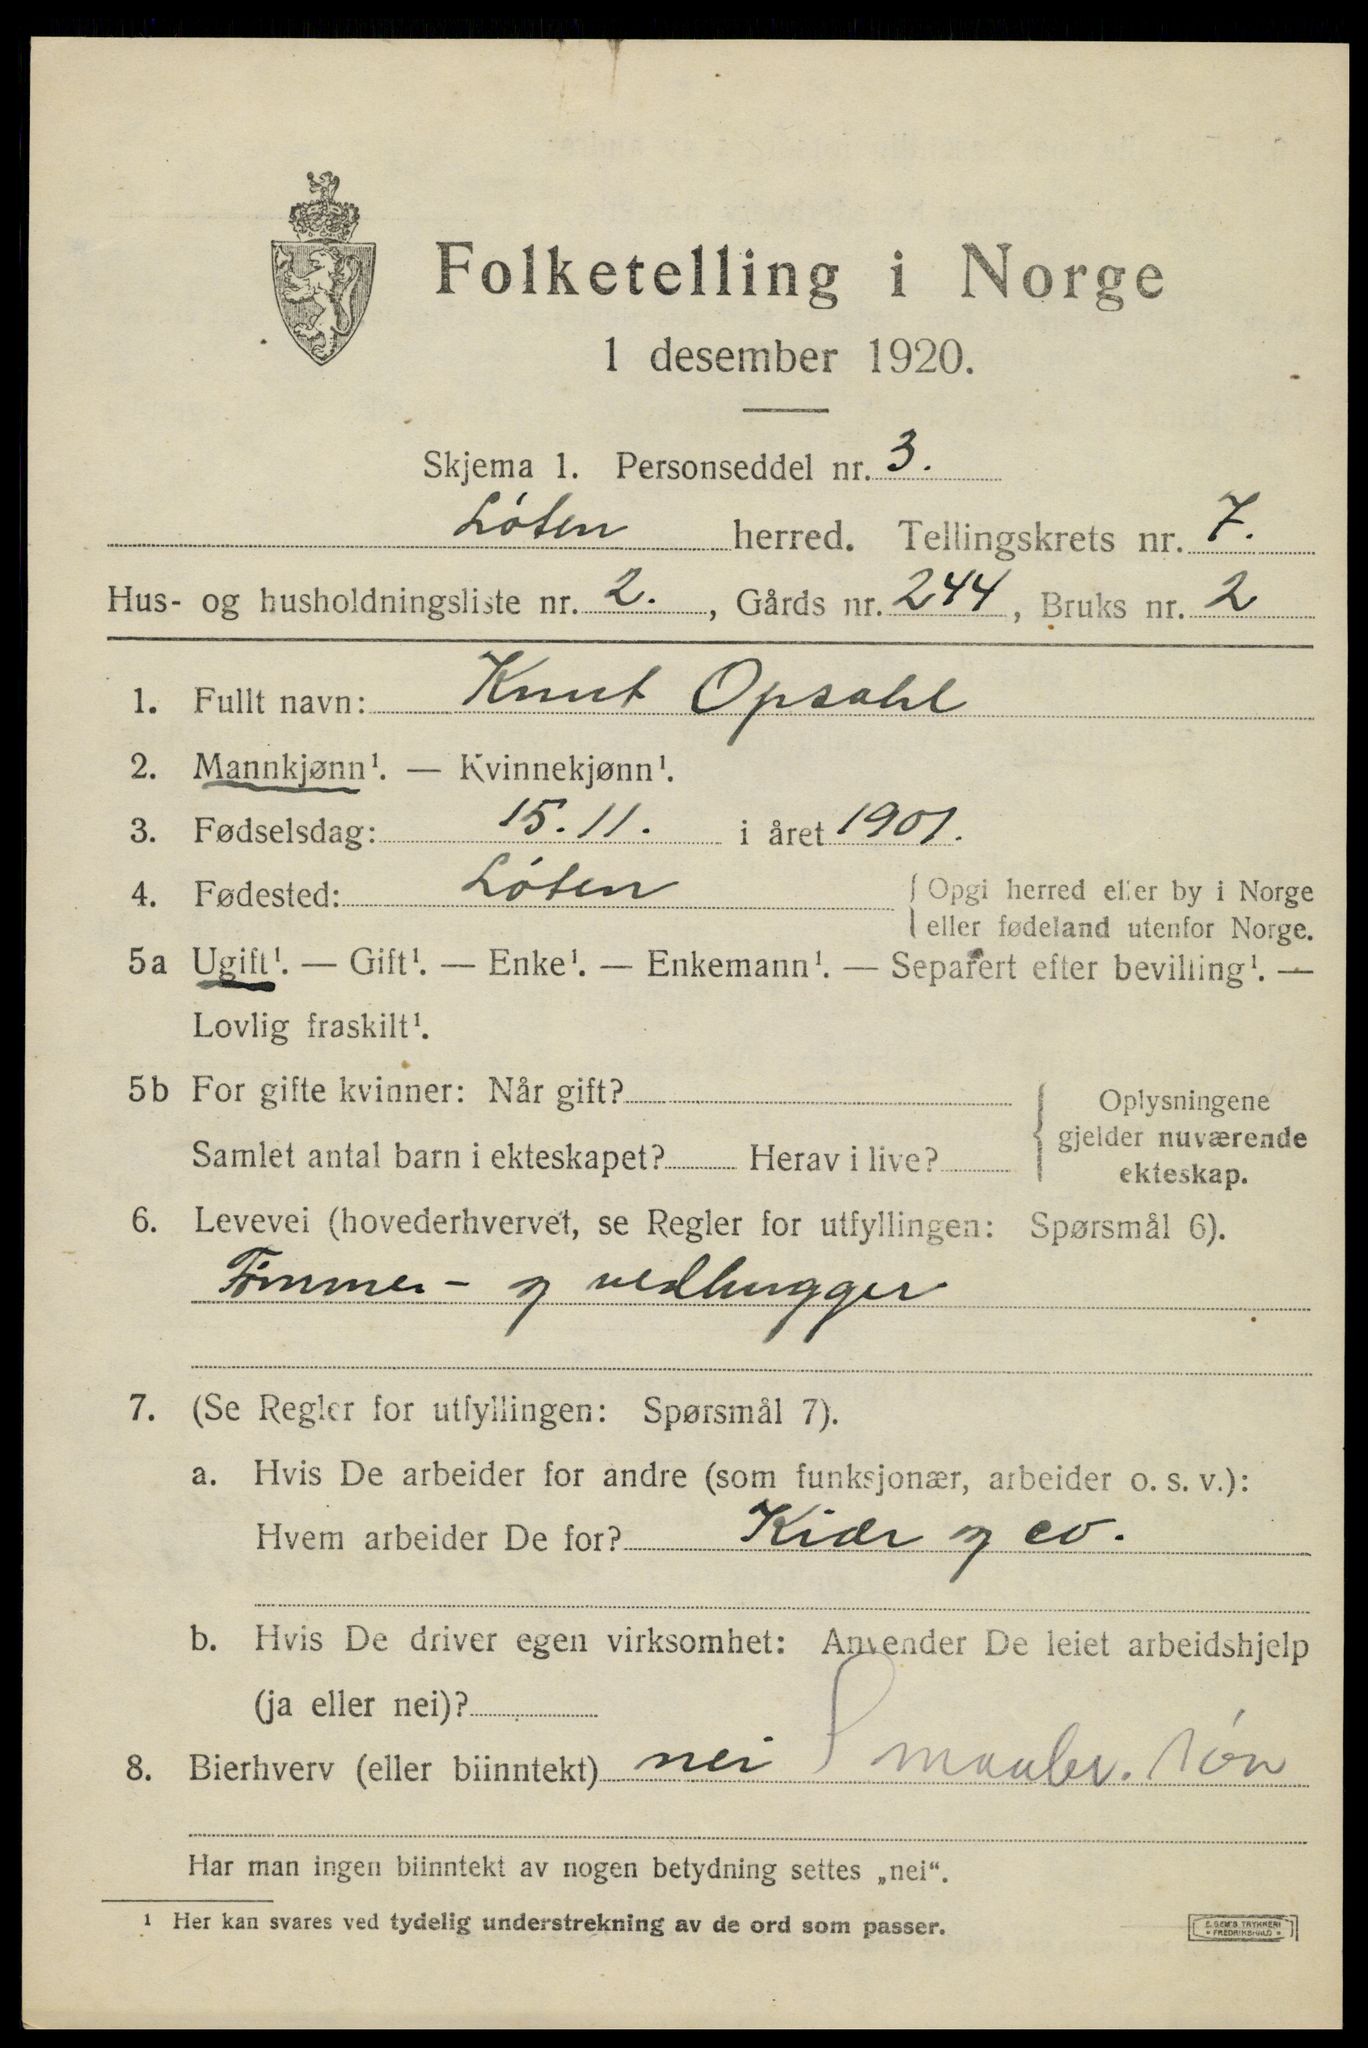 Folketelling i Norge
1 desember 1920.
Skjema 1. Personseddel nr. 3.
Løten herred. Tellingskrets nr. 7.
Hus- og husholdningsliste nr. 2., Gårds nr. 244, Bruks nr. 2
1. Fullt navn: Knut Opsahl
2. Mannkjønn¹. — Kvinnekjønn¹.
3. Fødselsdag: 15. 11. i året 1901.
4. Fødested: Løten { Opgi herred eller by i Norge
eller fødeland utenfor Norge.
5a Ugift¹. — Gift¹. — Enke¹. — Enkemann¹. — Separert efter bevilling¹. —
Lovlig fraskilt¹.
5b For gifte kvinner: Når gift?
Samlet antal barn i ekteskapet? Herav i live?
Oplysningene
gjelder nuværende
ekteskap.
6. Levevei (hovederhvervet, se Regler for utfyllingen: Spørsmål 6).
Tømmer- og vedhugger
7. (Se Regler for utfyllingen: Spørsmål 7).
a. Hvis De arbeider for andre (som funksjonær, arbeider o. s. v.):
Hvem arbeider De for? Kiær og co.
b. Hvis De driver egen virksomhet: Anvender De leiet arbeidshjelp
(ja eller nei)?
8. Bierhverv (eller biinntekt) nei Smaabr. søn
Har man ingen biinntekt av nogen betydning settes „nei“.
¹ Her kan svares ved tydelig understrekning av de ord som passer.
E. SEM'S TRYKKERI
* FREDRIKSHALD *